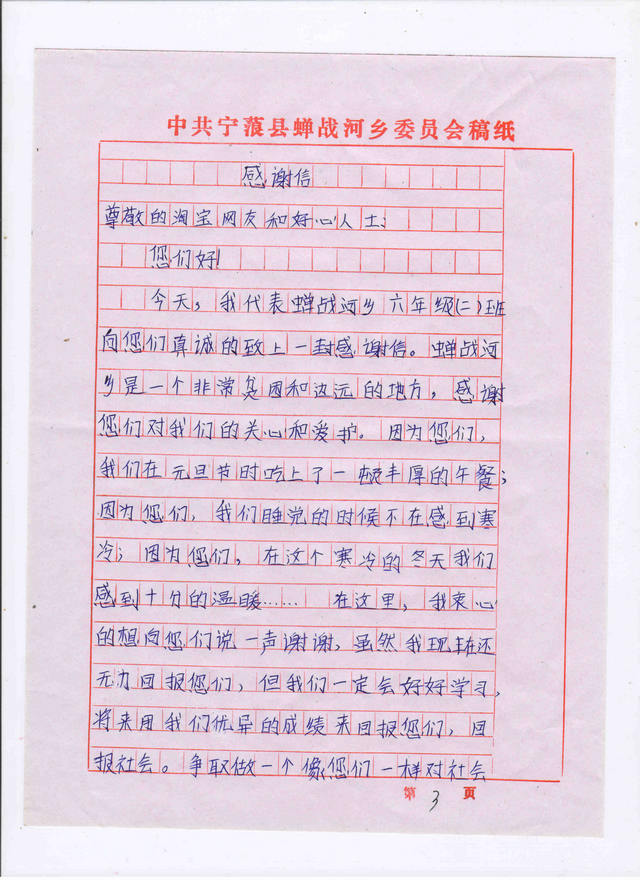 中共宁蒗县蝉战河乡委员会稿纸
感谢信
尊敬的淘宝网友和好心人士:
您们好!
今天，我代表蝉战河乡六年级(二)班
向您们真诚的致上一封感谢信。蝉战河
乡是一个非常贫困和边远的地方，感谢
您们对我们的关心和爱护。因为您们，
我们在元旦节时吃上了一顿丰厚的午餐;
因为您们，我们睡觉的时候不在感到寒
冷;因为您们，在这个寒冷的冬天我们
感到十分的温暖…… 在这里，我衷心
的想向您们说一声谢谢，虽然我现在还
无力回报您们，但我们一定会好好学习，
将来用我们优异的成绩来回报您们，回
报社会。争取做一个像您们一样对社会
第3页